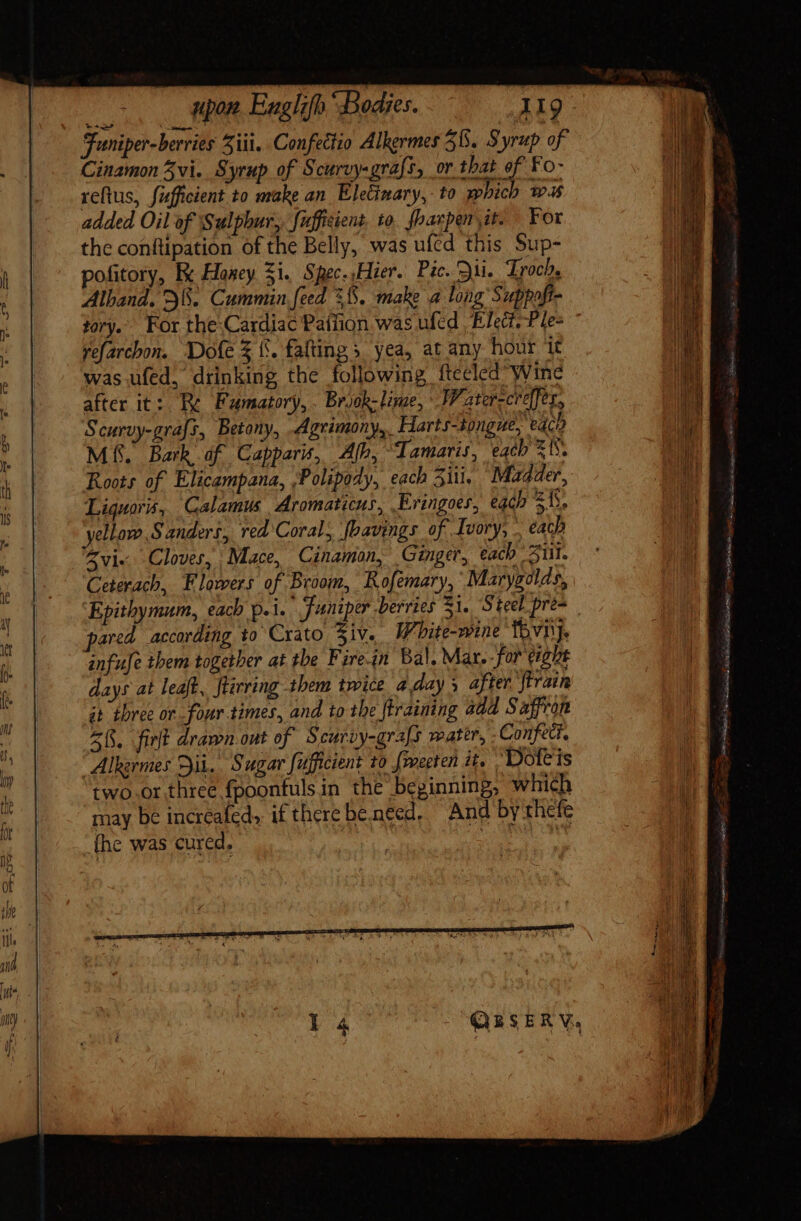 upon Engliſh Bodies. 119
Juniper-berries ʒiii. Confectio Alkermes ʒß. Syrup of
Cinamon ʒvi. Syrup of Scurvy-graſs, or that of Fo-
reſtus, ſufficient to make an Electuary, to which was
added Oil of Sulphur, ſufficient to ſharpen it. For
the conſtipation of the Belly, was uſed this Sup-
poſitory, ℞ Honey ℥i. Spec. Hier. Pic. ℈ii. Troch.
Alhand. ℈ß. Cummin ſeed ʒß. make a long Suppoſi-
tory. For the Cardiac Paſſion was uſed Elect. Ple-
reſarchon. Doſe ℥ß. faſting; yea, at any hour it
was uſed, drinking the following ſteeled Wine
after it: ℞ Fumatory, Brook-lime, Water-creſſes,
Scurvy-graſs, Betony, Agrimony, Harts-tongue, each
Mß. Bark of Capparis, Aſh, Tamaris, each ℥ß.
Roots of Elicampana, Polipody, each ʒiii. Madder,
Liquoris, Calamus Aromaticus, Eringoes, each ℥ß.
yellow Sanders, red Coral, ſhavings of Ivory, each
ʒvi. Cloves, Mace, Cinamon, Ginger, each ʒiii.
Ceterach, Flowers of Broom, Roſemary, Marygolds,
Epithymum, each p.i. Juniper-berries ℥i. Steel pre-
pared according to Crato ℥iv. White-wine lbviij.
infuſe them together at the Fire in Bal. Mar. for eight
days at leaſt, ſtirring them twice a day; after ſtrain
it three or four times, and to the ſtraining add Saffron
ʒß. firſt drawn out of Scurvy-graſs water, Confect.
Alkermes ℈ii. Sugar ſufficient to ſweeten it. Doſe is
two or three ſpoonfuls in the beginning, which
may be increaſed, if there be need. And by theſe
ſhe was cured.
I 4 OBSERV.